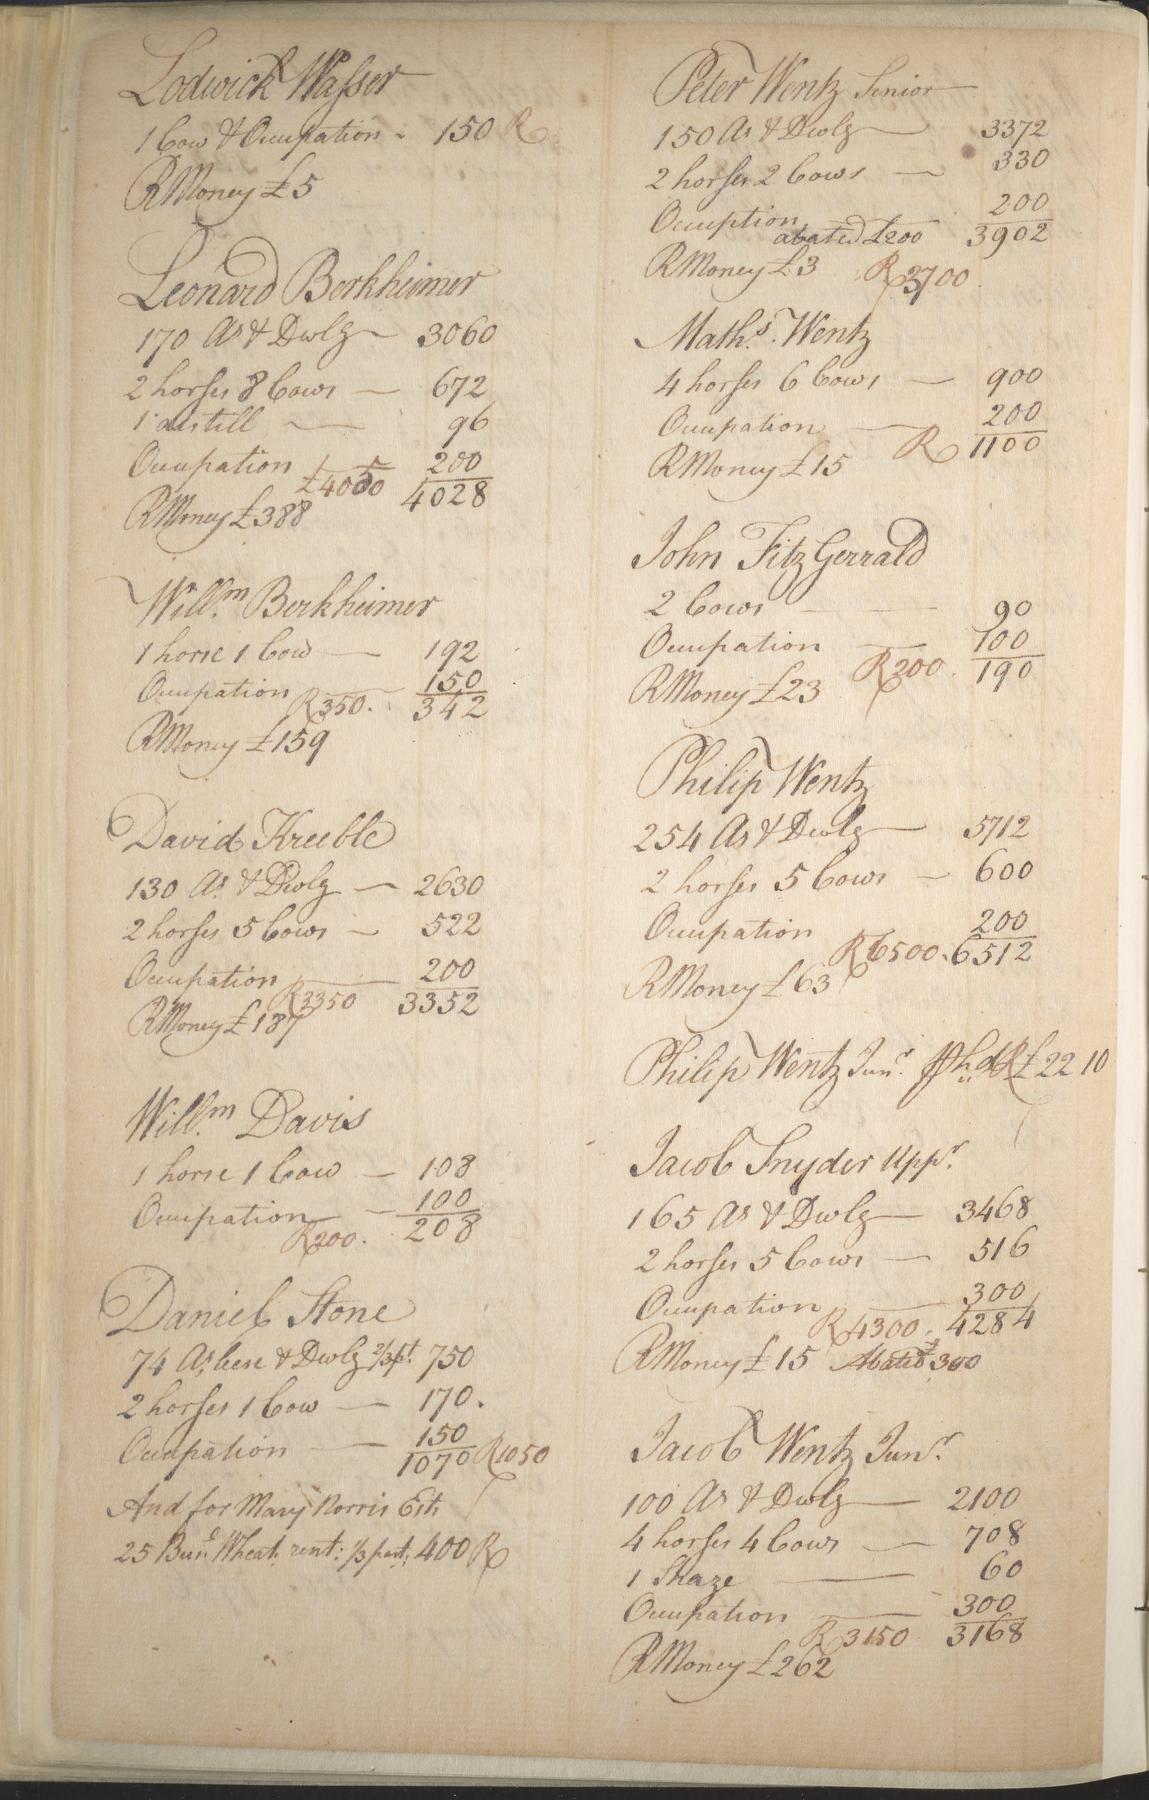 Lodwick Wasser
1 Cow & Occupation - 150 R
R Money £5
Leonard Berkheimer
170 As & Dwlg 3060
2 horses 8 Cows — 672
1 distill — 96
Occupation 200
£4050 4028
R Money £388
Will.m Berkheimer
1 horse 1 Cow — 192
Occupation 150
R350. 342
R Money £159
David Kreeble
130 As & Dwlg — 2630
2 horses 5 Cows — 522
Occupation 200
R3350 3352
R Money £187
Will.m Davis
1 horse 1 Cow — 108
Occupation — 100
R200. 208
Daniel Stone
74 As lease & Dwlg 2/3 pt. 750
2 horses 1 Cow — 170.
Occupation — 150
1070 R1050
And for Mary Norris Est.
25 Bus. Wheat rent: 1/3 part, 400 R
Peter Wentz Senior
150 As & Dwlg 3372
2 horses 2 Cows — 330
Occuption 200
abated £200 3902
R Money £3 R3700
Math.s Wentz
4 horses 6 Cows — 900
Occupation — 200
R 1100
R Money £15
John FitzGerrald
2 Cows — 90
Occupation — 100
R200. 190
R Money £23
Philip Wentz
254 As & Dwlg 5712
2 horses 5 Cows — 600
Occupation 200
R6500. 6512
R Money £63
Philip Wentz Jun.r R £22 10
Jacob Snyder Upp.r
165 As & Dwlg 3468
2 horses 5 Cows — 516
Occupation 300
R4300. 4284
R Money £15 Abated £300
Jacob Wentz Jun.r
100 As & Dwlg 2100
4 horses 4 Cows — 708
1 Shaze — 60
Occupation 300
R3150 3168
R Money £262